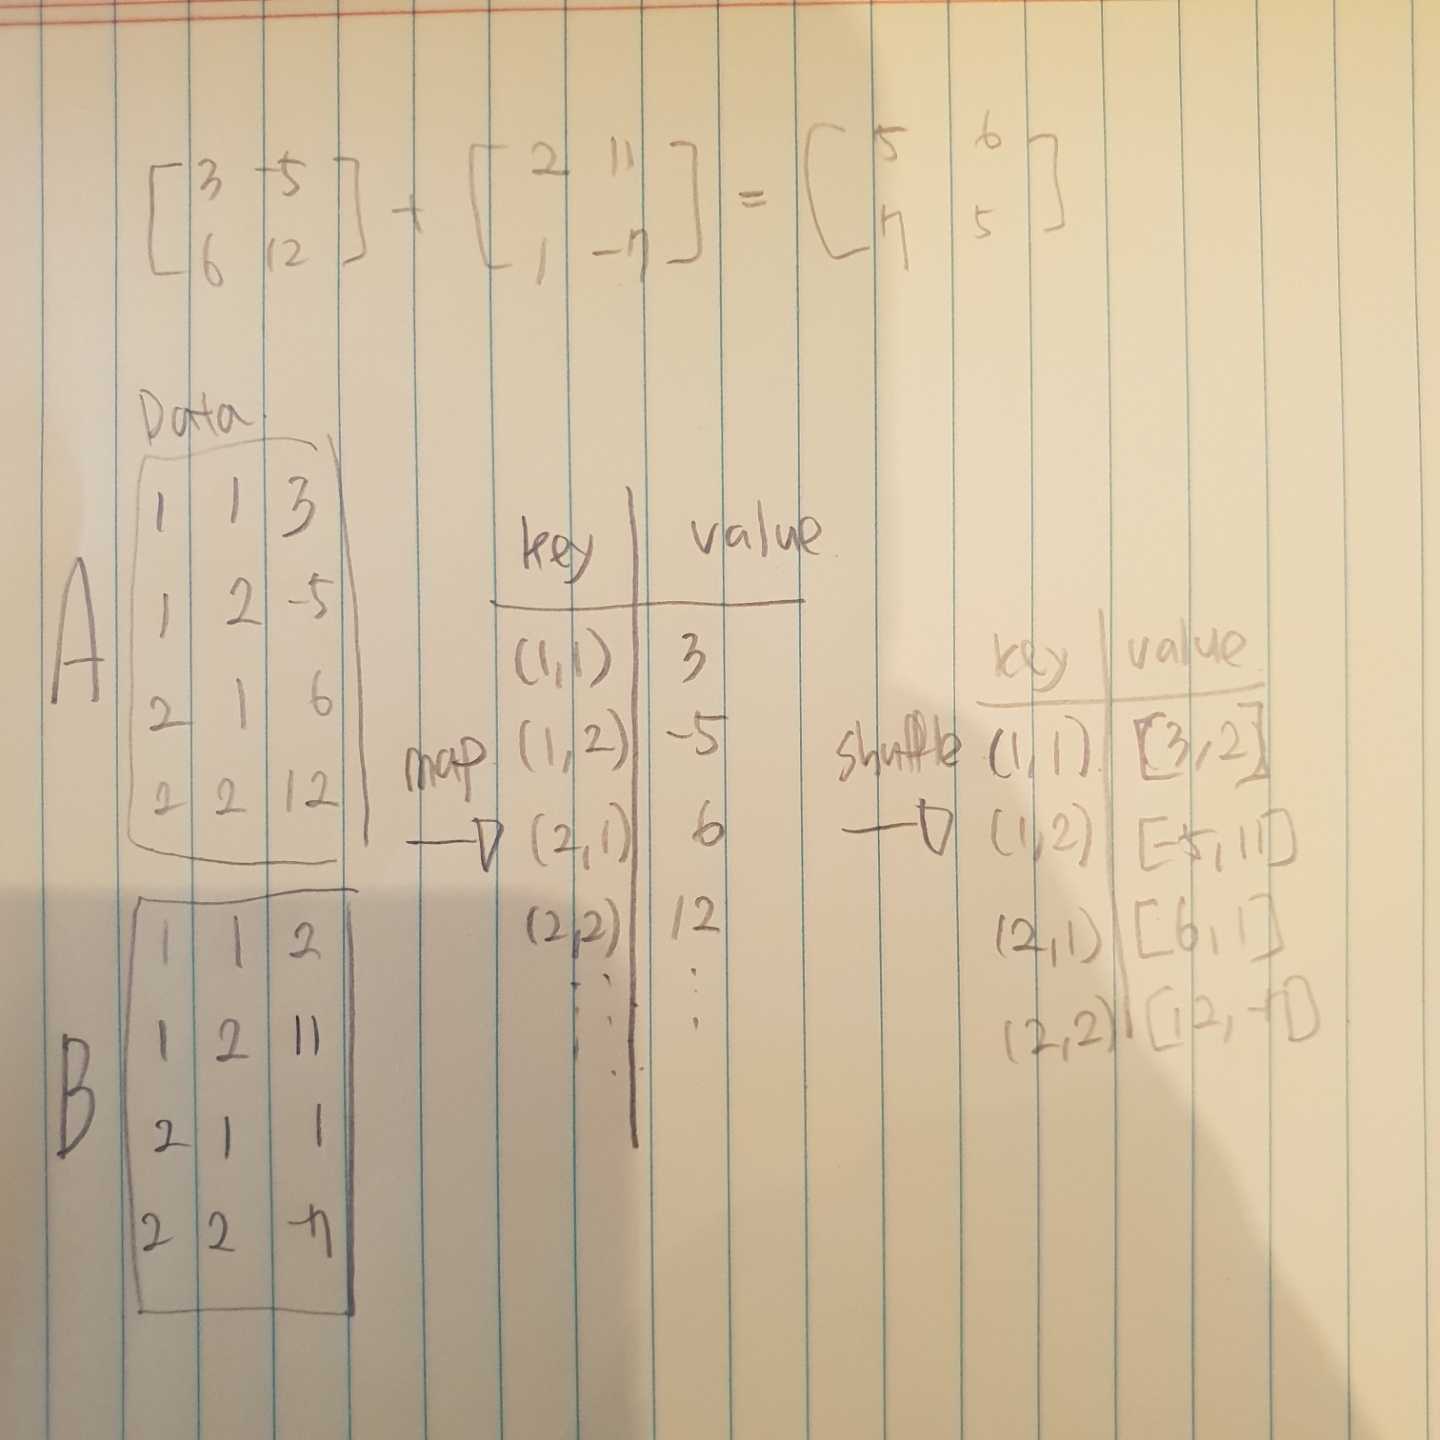 [3 -5] + [2 11] = [5 6]
[6 12] [1 -7] [7 5]
Data
A
1 1 3
1 2 -5
2 1 6
2 2 12
B
1 1 2
1 2 11
2 1 1
2 2 -7
map
key value
(1,1) 3
(1,2) -5
(2,1) 6
(2,2) 12
shuffle
key value
(1,1) [3,2]
(1,2) [-5,11]
(2,1) [6,1]
(2,2) [12,-7]